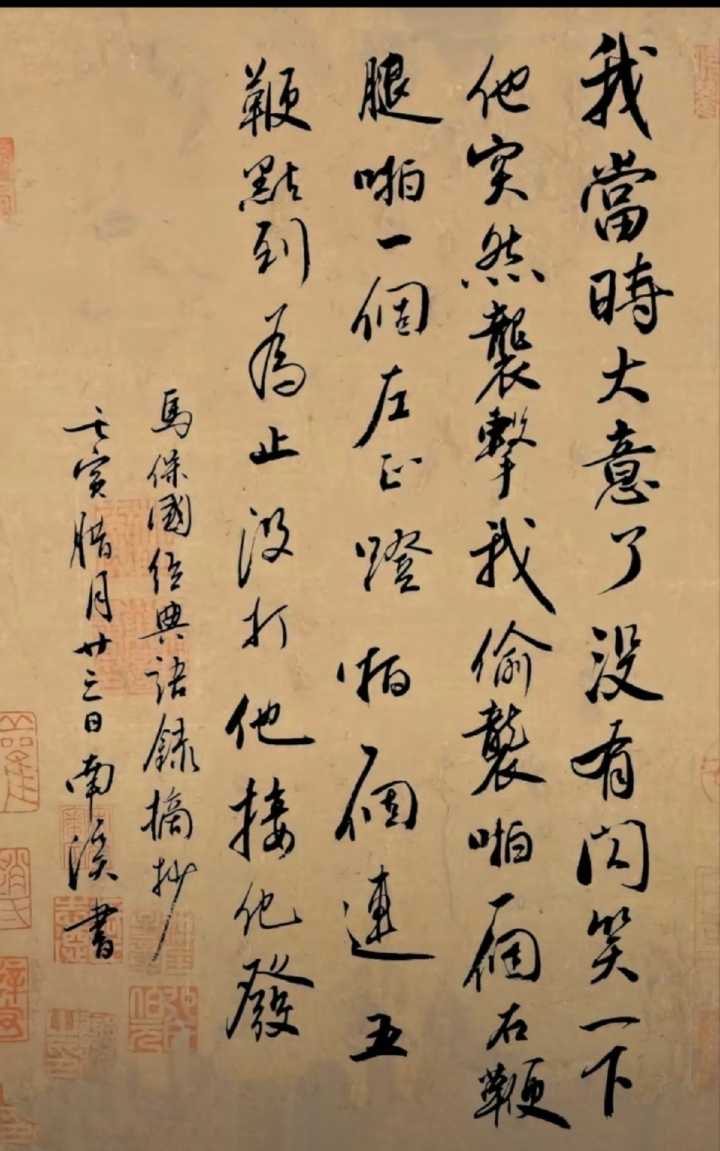 我當時大意了没有闪笑一下
他突然襲擊我偷襲啪一個右鞭
腿啪一個左正蹬啪一個連五
鞭點到為止没打他接化發
馬保國经典語錄摘抄
壬寅腊月廿三日南溪書